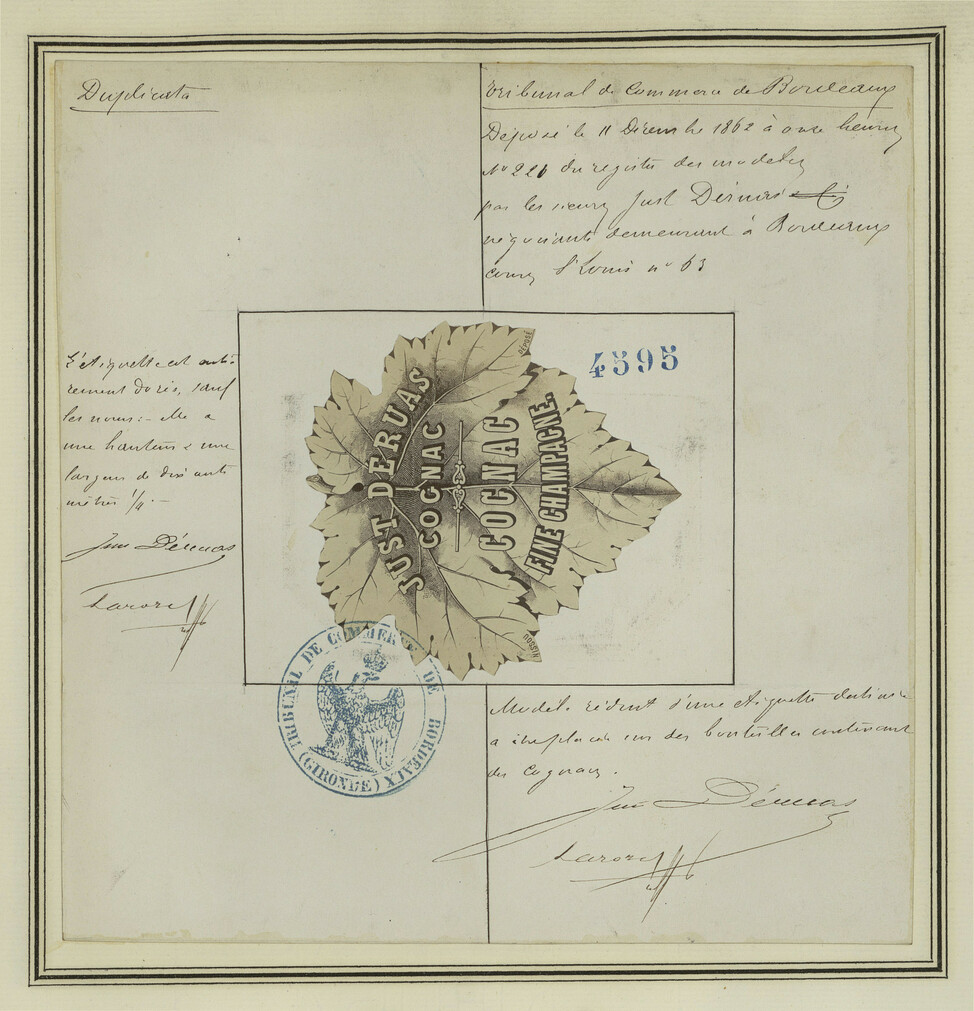 Duplicata
Tribunal de Commerce de Bordeaux
Déposé le 11 Décembre 1862 à onze heures
du registre des modeles
par les sieurs Just Déruas & Cie
négociants demeurant à Bordeaux
cours St Louis n° 63
L'étiquette est enti-
rement dorée, sauf
les noms :- elle a
une hauteur & une
largeur de dix centi
mètres 1/4 . -
Just Déruas
4595
DÉPOSÉ
JUST DERUAS
COGNAC
COGNAC
FINE CHAMPAGNE.
NISSOU
TRIBUNAL DE COMMERCE DE BORDEAUX
(GIRONDE)
Modele réduit d'une étiquette destinée
a être placée sur des bouteilles contenant
des cognacs .
Just Déruas